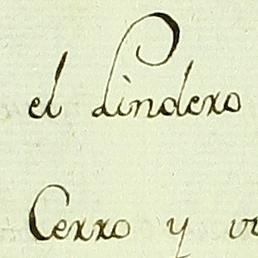 el Lindero
Cerro y